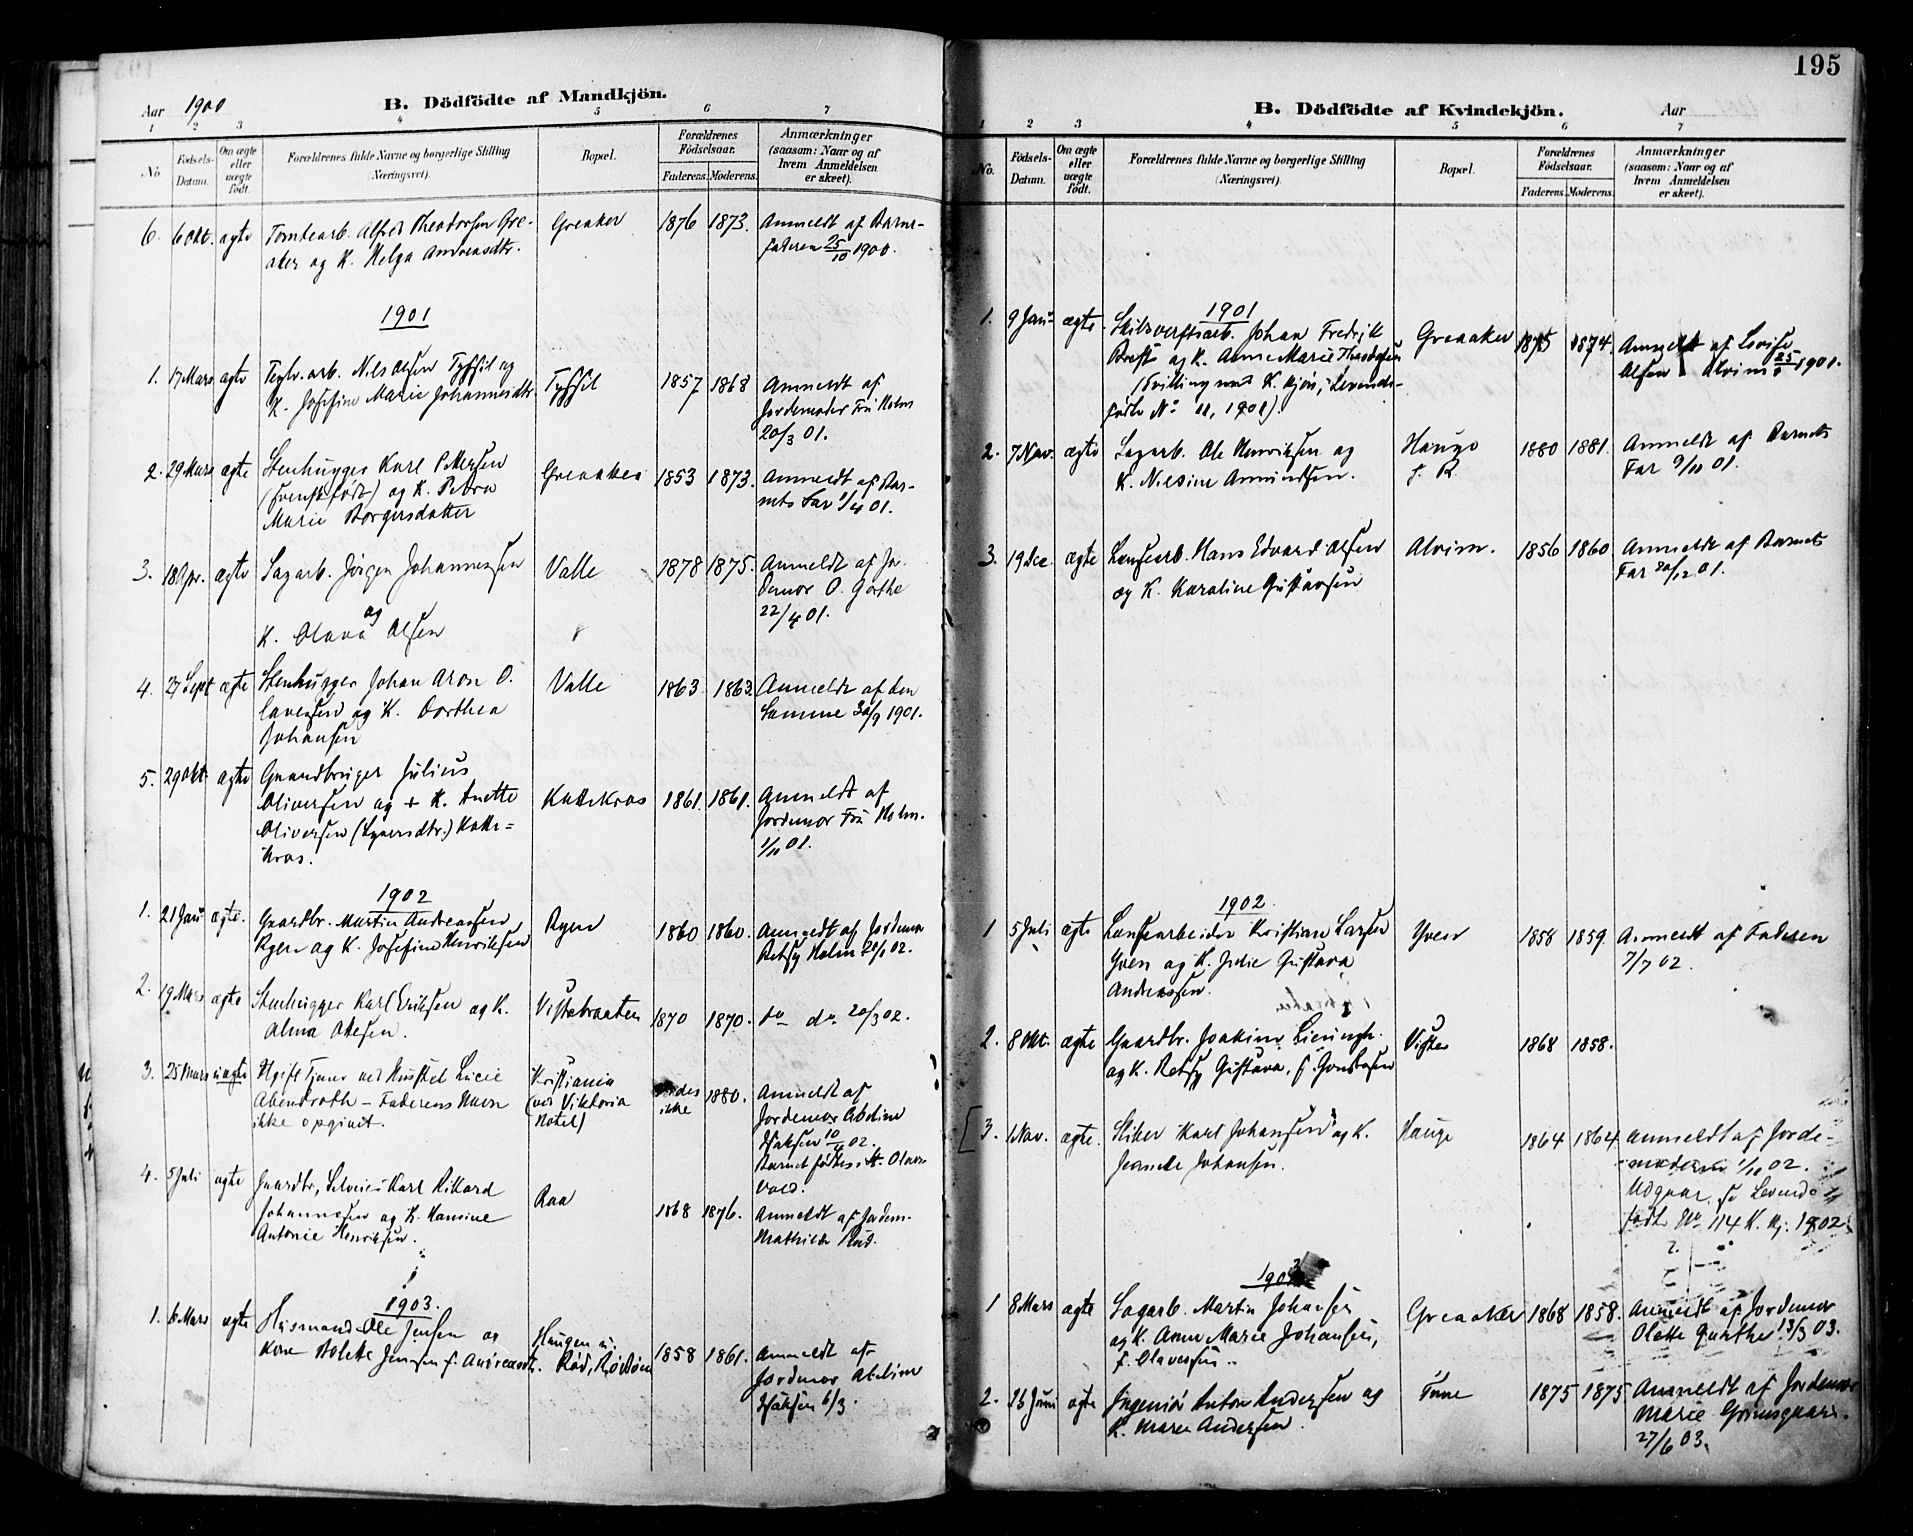 Aar 1900 B. Dödfödte af Mandkjön.
1 2 3 4 5 6 7
No. Födsels-Datum. Om ægte eller uægte födt. Forældrenes fulde Navne og borgerlige Stilling (Næringsvei). Bopæl. Forældrenes Födselsaar. Faderens. Moderens. Anmærkninger (saasom: Naar og af hvem Anmeldelsen er skeet).
6. 6 Okt. ægte Tomtearb. Alfred Theodorsen Gre- Greaker 1876 1873. Anmeldt af Barne-
aker og K. Helga Andreasdtr. faderen 25/10 1900.
1901
1. 17 Mars ægte Teglv.arb. Nils Olsen og 1857 1868 Anmeldt af
K. Josefine Marie Johannesdtr. Jordemoder Fru Holm
20/3 01.
2. 29 Mars ægte Stenhugger Karl Pettersen Greaaker 1853 1873. Anmeldt af Bar-
(svensk født) og K. Petra nets Far 1/4 01.
Marie Borgersdatter
3. 18 Apr. ægte Sagarb. Jørgen Johannessen Valle 1878 1875. Anmeldt af Jor
og demor O. Garthe
K. Olava Olsen 22/4 01.
4. 27 Sept ægte Stenhugger Johan Aron O. Valle 1863. 1863. Anmeldt af den
lavessen og K. Dorthea Samme 30/9 1901.
Johansen
5. 29 Okt. ægte Gaardbruger Julius
Oliversen og + K. Anette Kattekras 1861. 1861. Anmeldt af
Oliversen Katte= Jordemor Fru Holm.
kras. 1/11 01.
1902
1. 21 Janu ægte. Gaardbr. Martin Andreassen Ryen 1860 1860. Anmeldt af Jordemor
Ryen og K. Josefine Henriksen Betsy Holm 02.
2. 19 Mars ægte Stenhugger Karl Eriksen og K. Vistebraaten 1870 1870. do do 20/3 02.
Alma Olesen.
3. 25 Mars uægte Ugift Tjener ved Lucie Kristiania ikke 1880. Anmeldt af
Abendroth – Faderens Navn (ved Viktoria Jordemor
ikke opgivet. Hotel) Isaksen 10/4 02.
Barnet fødtes i St. Olavs
vold.
4. 5 Juli ægte Gaardbr., Selveier Karl Rikard Raa 1868 1876. Anmeldt af Jordem.
Johannesen og K. Hansine Mathilde Rud.
Antonie Henriksen.
1903.
1. 6 Mars ægte Husmand Ole Jensen og Haugen u.
kone Jensen f. Andreasdt. Rød, 1858 1861. Anmeldt af
Jordemor
Isaksen 6/3.
195
B. Dödfödte af Kvindekjön. Aar
1 2 3 4 5 6 7
No. Födsels-Datum. Om ægte eller uægte födt. Forældrenes fulde Navne og borgerlige Stilling (Næringsvei). Bopæl. Forældrenes Födselsaar. Faderens. Moderens. Anmærkninger (saasom: Naar og af hvem Anmeldelsen er skeet).
1901
1. 9 Janu ægte. Skibsverftsarb. Johan Fredrik Greaaker 1875 1874. Anmeldt af Lovise
og K. Anne Marie Olsen Alvim 1901.
(Tvilling med K. Kjøn, Levende-
fødte No 11, 1901).
2. 7 Nov. ægte Sagarb. Ole Henriksen og Hauge 1880 1881. Anmeldt af Barnets
K. Nielsine Amundsen. S. R Far 9/11 01.
3. 19 Dec ægte Lensearb. Hans Edvard Olsen Alvim. 1856 1860 Anmeldt af Barnets
og K. Karoline Gustavsen Far 20/12 01.
1902.
1 5 Juli ægte Lensearbeider Kristian Larsen Yven 1858 1859. Anmeldt af Faderen
Yven og K. Julie Gustava 7/7 02.
Andreassen.
2. 8 Okt. ægte Gaardbr. Joakim Vister 1868 1858.
og K. Betsy Gustava, f.
3. 1 Nov. ægte. Skiber Karl Johansen og K. Hauge 1864 1864 Anmeldt af Jorde-
Jeanette Johansen. moderen 1/11 02.
Udgaar, se Levende
fødte No 114 K. Kj. 1902
1903
1 8 Mars ægte Sagarb. Martin Johansen Greaaker 1868 1858. Anmeldt af Jordemor
og K. Anne Marie Johansen, Olette Garthe 13/3 03.
f. Olavessen.
2. 26 Juni ægte Ingeniør Anton Andersen og Tune 1875 1875 Anmeldt af Jordemor
K. Maren Andersen. Marie Grimsgaard.
27/6 03.